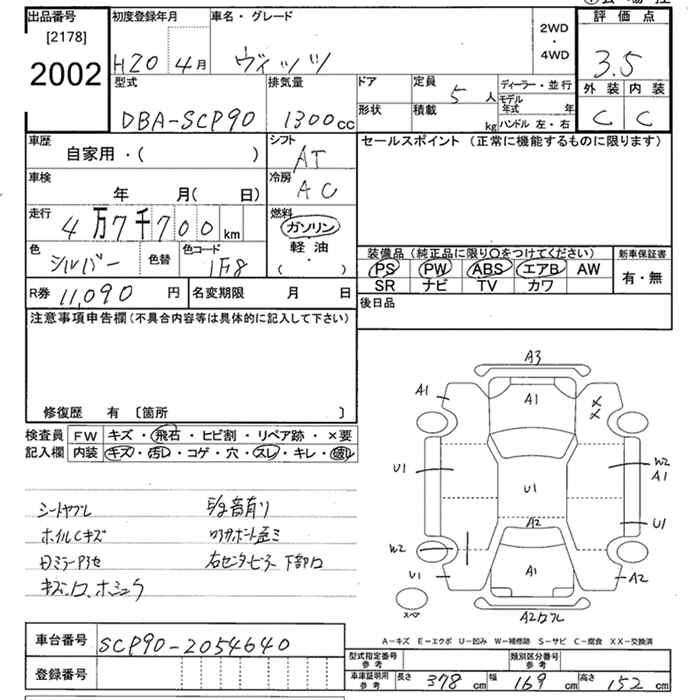 出品番号 初度登録年月 車名・グレード 2WD・4WD 評価点
[2178]
2002 H20 4月 ヴィッツ 3.5
型式 排気量 ドア 定員 5人 ディーラー・並行 外装 内装
DBA-SCP90 1300cc 形状 積載 kg モデル年式 年 C C
ハンドル 左・右
車歴 シフト セールスポイント (正常に機能するものに限ります)
自家用・( ) AT
車検 冷房
年 月( 日) AC
走行 燃料
4万7千700km ガソリン
色 色替 色コード 軽油 装備品(純正品に限り〇をつけてください) 新車保証書
シルバー 1F8 (・) PS PW ABS エアB AW 有・無
SR ナビ TV カワ
R券 11,090円 名変期限 月 日 後日品
注意事項申告欄(不具合内容等は具体的に記入して下さい)
修復歴 有 〔箇所 〕
検査員 FW キズ・飛石・ヒビ割・リペア跡・×要
記入欄 内装 キズ・汚レ・コゲ・穴・スレ・キレ・破レ
シートヤブレ
ホイルCキズ
A3
A1 A1 X X
U1 W2
A1
U1
A2 U1
W2
U1 A1 A2
スペア
A2
A-キズ E-エクボ U-凹み W-補修跡 S-サビ C-腐食 XX-交換済
車台番号 SCP90-2054640
登録番号
型式指定番号 参考 類別区分番号 参考
車庫証明用 参考 長さ 378cm 幅 169cm 高さ 152cm